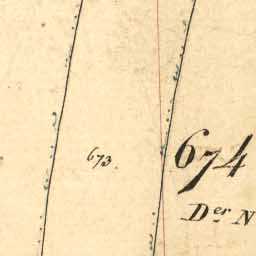 673.
674
Der N